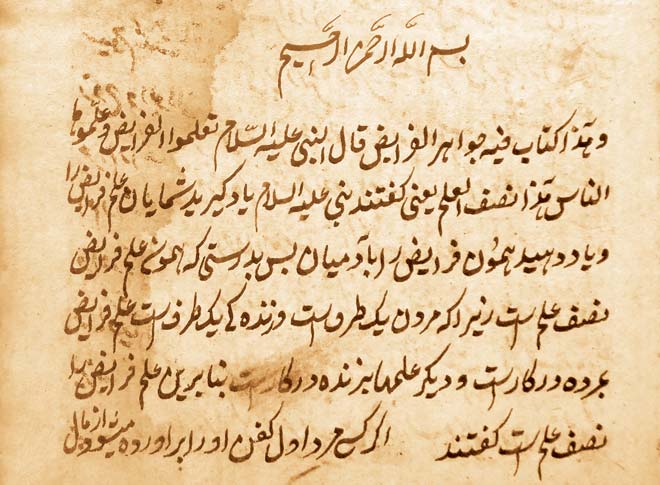 بسم الله الرحمن الرحیم
و هذا کتاب فیه جواهر الفرایض قال النبی علیه السلام تعلموا الفرایض و علموها
الناس هذا نصف العلم یعنی کفتند نبی علیه السلام یاد کیرید شمایان علم فرایض را
و یاد دهید همون فرایض را بآدمیان بس بدرستی که همون علم فرایض
نصف علم است زیرا که مردن یک طرف است و زنده کی یک طرف است علم فرایض
بمرده درکار است و دیکر علمها بزنده درکار است بنابرین علم فرایض را
نصف علم است کفتند اکر کسی مرد اول کفن او را براورده میشود از مال